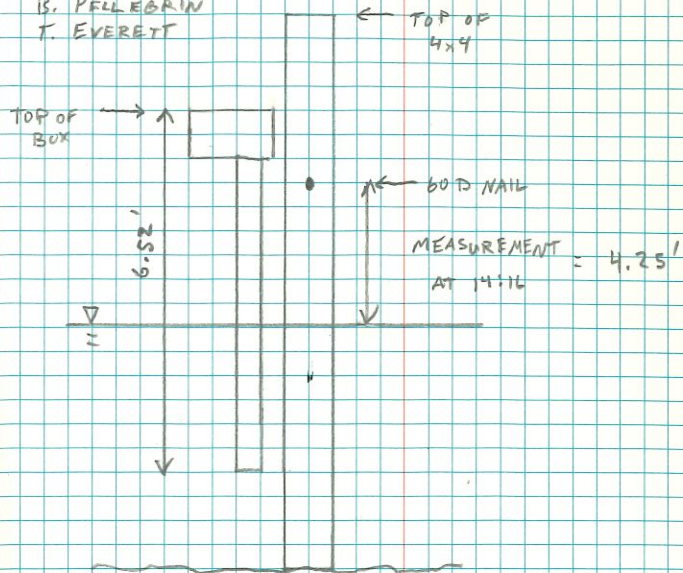 B. PELLEGRIN
T. EVERETT
TOP OF
4x4
TOP OF
BOX
60 D NAIL
6.52'
MEASUREMENT
AT 14:16
= 4.25'